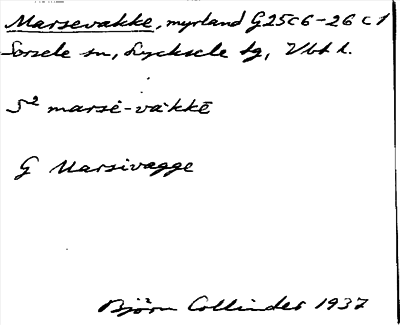 Marsevakke, myrland G25c6-26c1
Sorsele sn, Lycksele lg, Vbt l.
S² marsē-va·kkē
G Marsivagge
Björn Collinder 1937